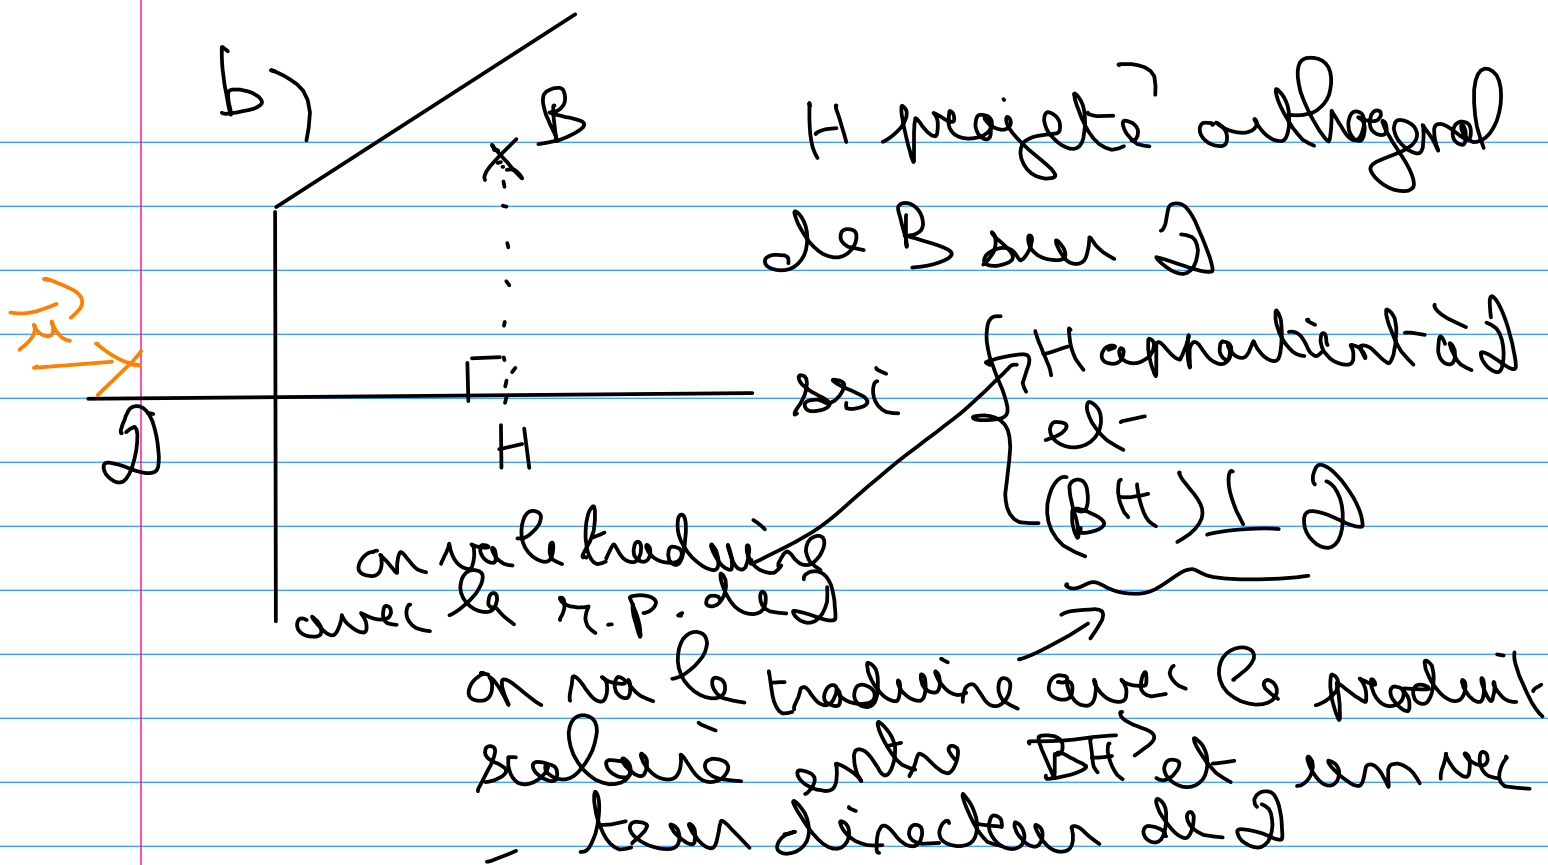 b)
B
H projeté orthogonal
de B sur D
u
D
H
ssi
H appartient à D
et
(BH) ⊥ D
on va le traduire
avec le r.p. de D
on va le traduire avec le produit
scalaire entre BH et un vec
teur directeur de D